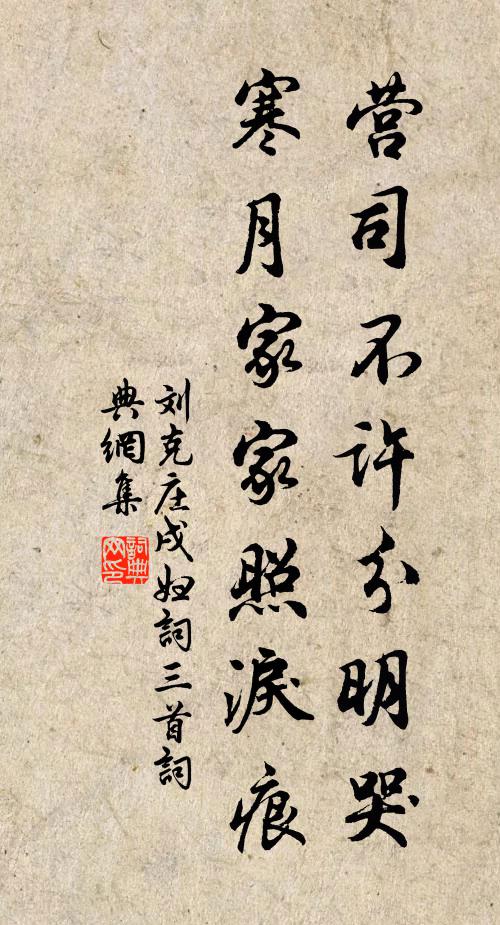 营司不许分明哭
寒月家家照淚痕
刘克庄戍妇詞三首詞
典網集
詞典
网印